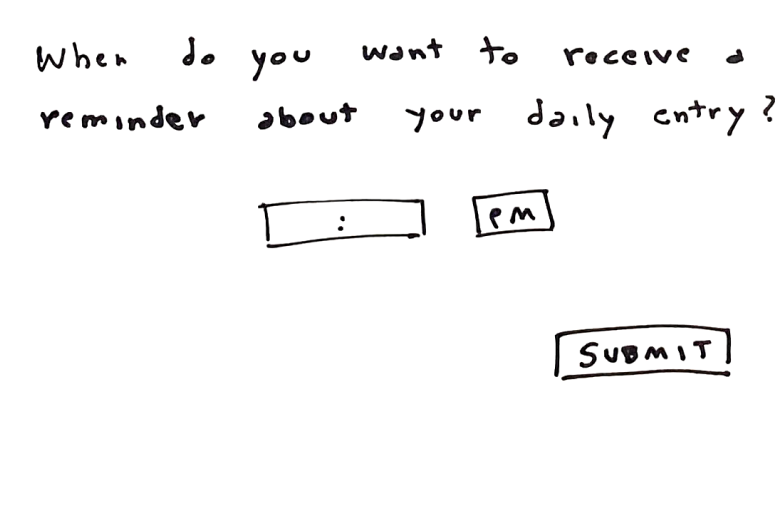 When do you want to receive a
reminder about your daily entry?
: PM
SUBMIT